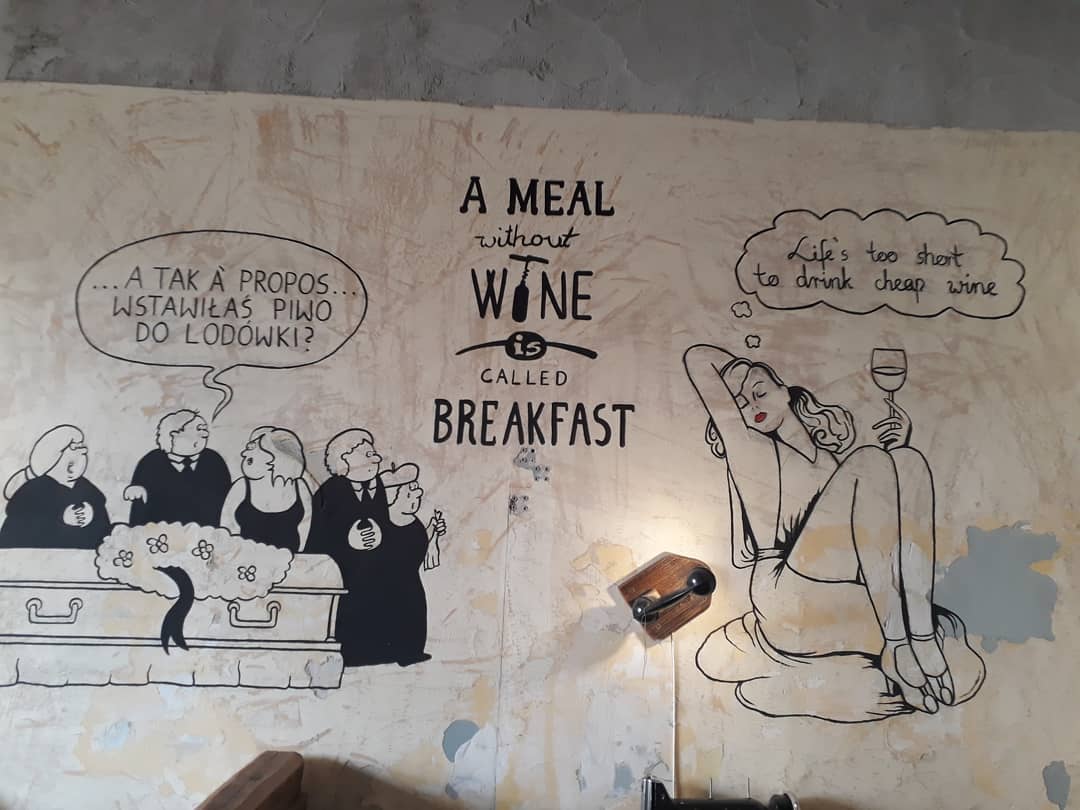 ...A TAK À PROPOS...
WSTAWIŁAŚ PIWO
DO LODÓWKI?
A MEAL
without
WINE
is
CALLED
BREAKFAST
Life's too short
to drink cheap wine